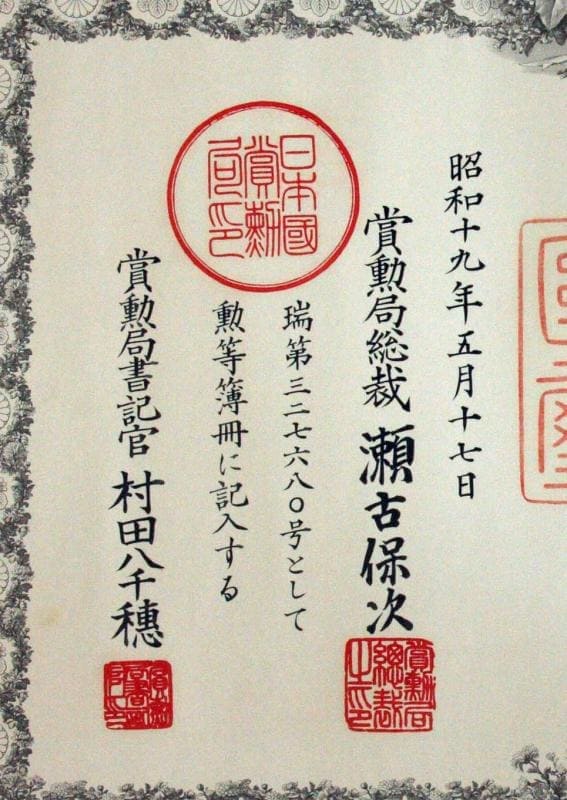 昭和十九年五月十七日
賞勲局総裁 瀬古保次
賞勲局総裁之印
日本國賞勲局印
瑞第三二七六八〇号として
勲等簿冊に記入する
賞勲局書記官 村田八千穂